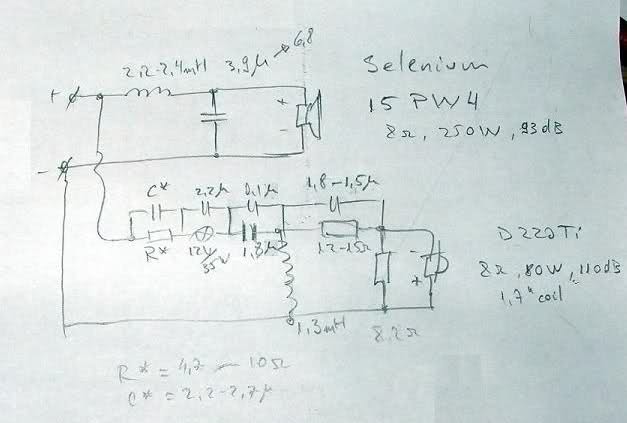 6,8
2,2-2,4mH 3,9µ
Selenium
15 PW4
8Ω, 250W, 93dB
+
-
+
-
C* 2,2µ 0,1µ 1,8-1,5µ
R* 12V/35W 1,8µ 12-15Ω
-
+
D220Ti
8Ω, 80W, 110dB
1,7" coil
1,3mH
8.2Ω
R* = 4,7 — 10Ω
C* = 2,2-2,7µ